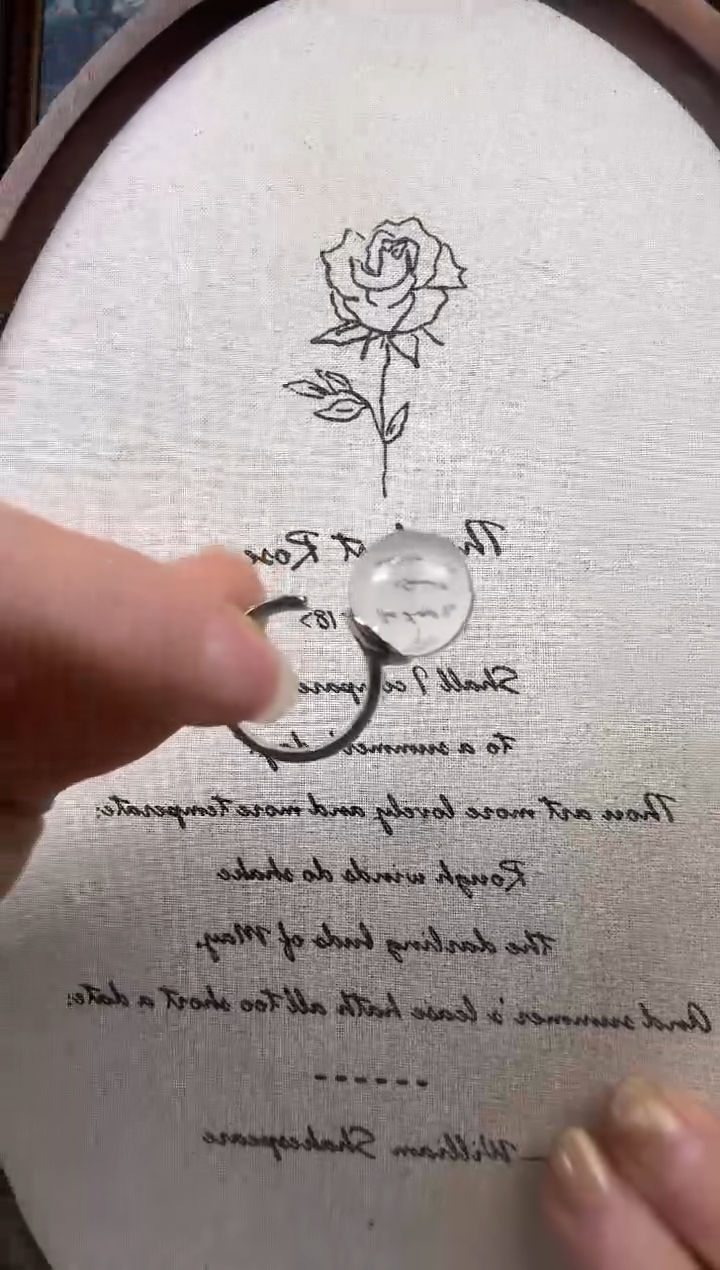 Th t Rose
18
Shall I co pare
to a summer's d
Thou art more lovely and more temperate:
Rough winds do shake
the darling buds of May,
And summer's lease hath all too short a date:
------
—William Shakespeare